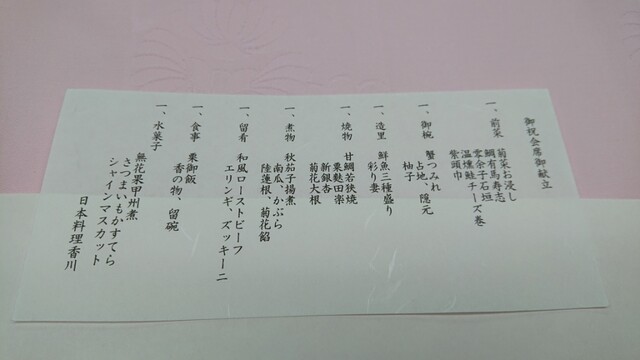 御祝会席御献立
一、前菜　菊菜お浸し
鯛有馬寿志
零余子石垣
温燻鮭チーズ巻
紫頭巾
一、御椀　蟹つみれ
占地、隠元
柚子
一、造里　鮮魚三種盛り
彩り妻
一、焼物　甘鯛若狭焼
粟麩田楽
新銀杏
菊花大根
一、煮物　秋茄子揚煮
南瓜、かぶら
陸蓮根、菊花餡
一、留肴　和風ローストビーフ
エリンギ、ズッキーニ
一、食事　栗御飯
香の物、留碗
一、水菓子
無花果甲州煮
さつまいもかすてら
シャインマスカット
日本料理香川